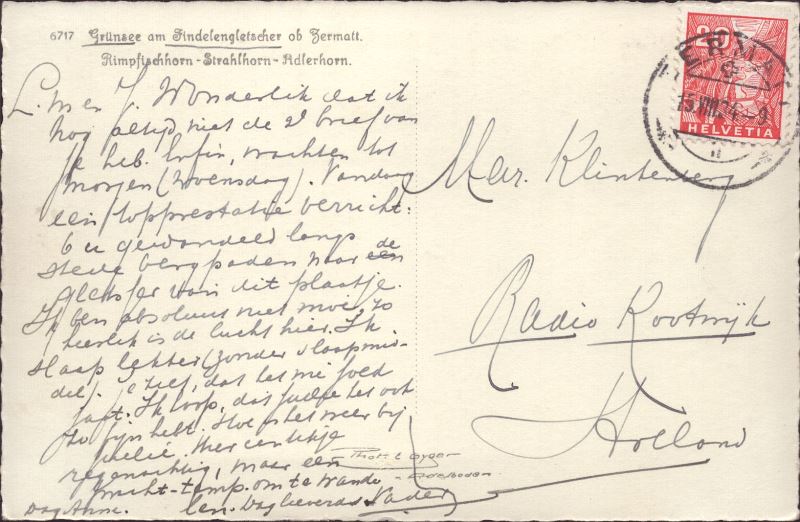 6717 Grünsee am Findelengletscher ob Zermatt.
Rimpfischhorn - Strahlhorn - Adlerhorn.
L. m en J. Wonderlik dat ik
nog altijd niet de 2e brief van
je heb. Enfin, wachten tot
morgen (Woensdag). Vandaag
een topprestatie verricht:
6 u gewandeld langs de
steile bergpaden naar een
gletsjer van dit plaatje.
Ik ben absoluut niet moe, zo
heerlik is de lucht hier. Ik
slaap lekker (zonder slaapmid-
del). 't Is, dat het me goed
doet. Ik hoop, dat jullie het ook
zo fijn hebt. Hoe is het weer bij
jullie. Hier een tikje
regenachtig, maar een
pracht-temp. om te wande-
len. Dag lieverds Vader
Dag Anne.
Mar. Klinkenberg
Radio Kootwijk
Holland
Phot. E. Gyger
Adelboden
HELVETIA
20
ZERMATT